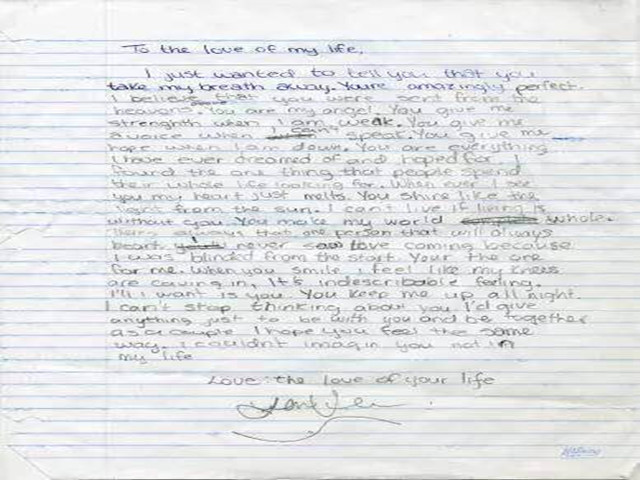 To the love of my life,
I just wanted to tell you that you
take my breath away. Youre amazingly perfect.
I believe that you were sent from the
heavens. You are my angel. You give me
strenghth when I am weak. You give me
a voice when I can't speak. You give me
hope when I am down. You are everything
I have ever dreamed of and hoped for. I
found the one thing that people spend
their whole life looking for. When ever I see
you my heart just melts. You shine like the
light from the sun. I can't live if living is
without you. You make my world whole.
always that one person that will always
heart. I never saw love coming because
I was blinded from the start. Your the one
for me. When you smile I feel like my knees
are caving in, It's indescribable feeling.
I'll I want is you. You keep me up all night.
I can't stop thinking about you I'd give
anything just to be with you and be together
as a couple I hope you feel the same
way. I couldn't imagin you not in
my life
Love: the love of your life